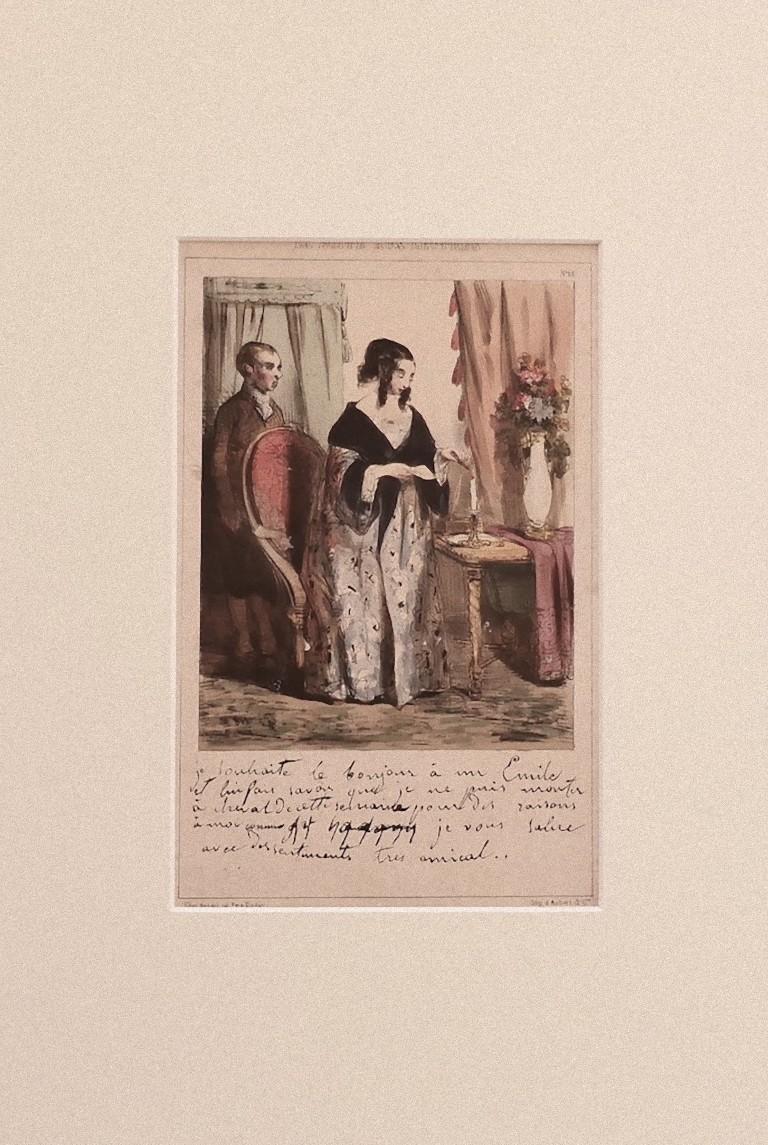 N°
je souhaite le bonjour à mr Emile
et lui fais savoir que je ne puis monter
à cheval de cette semaine pour des raisons
à moi connu je vous salue
avec des sentiments tres amical..